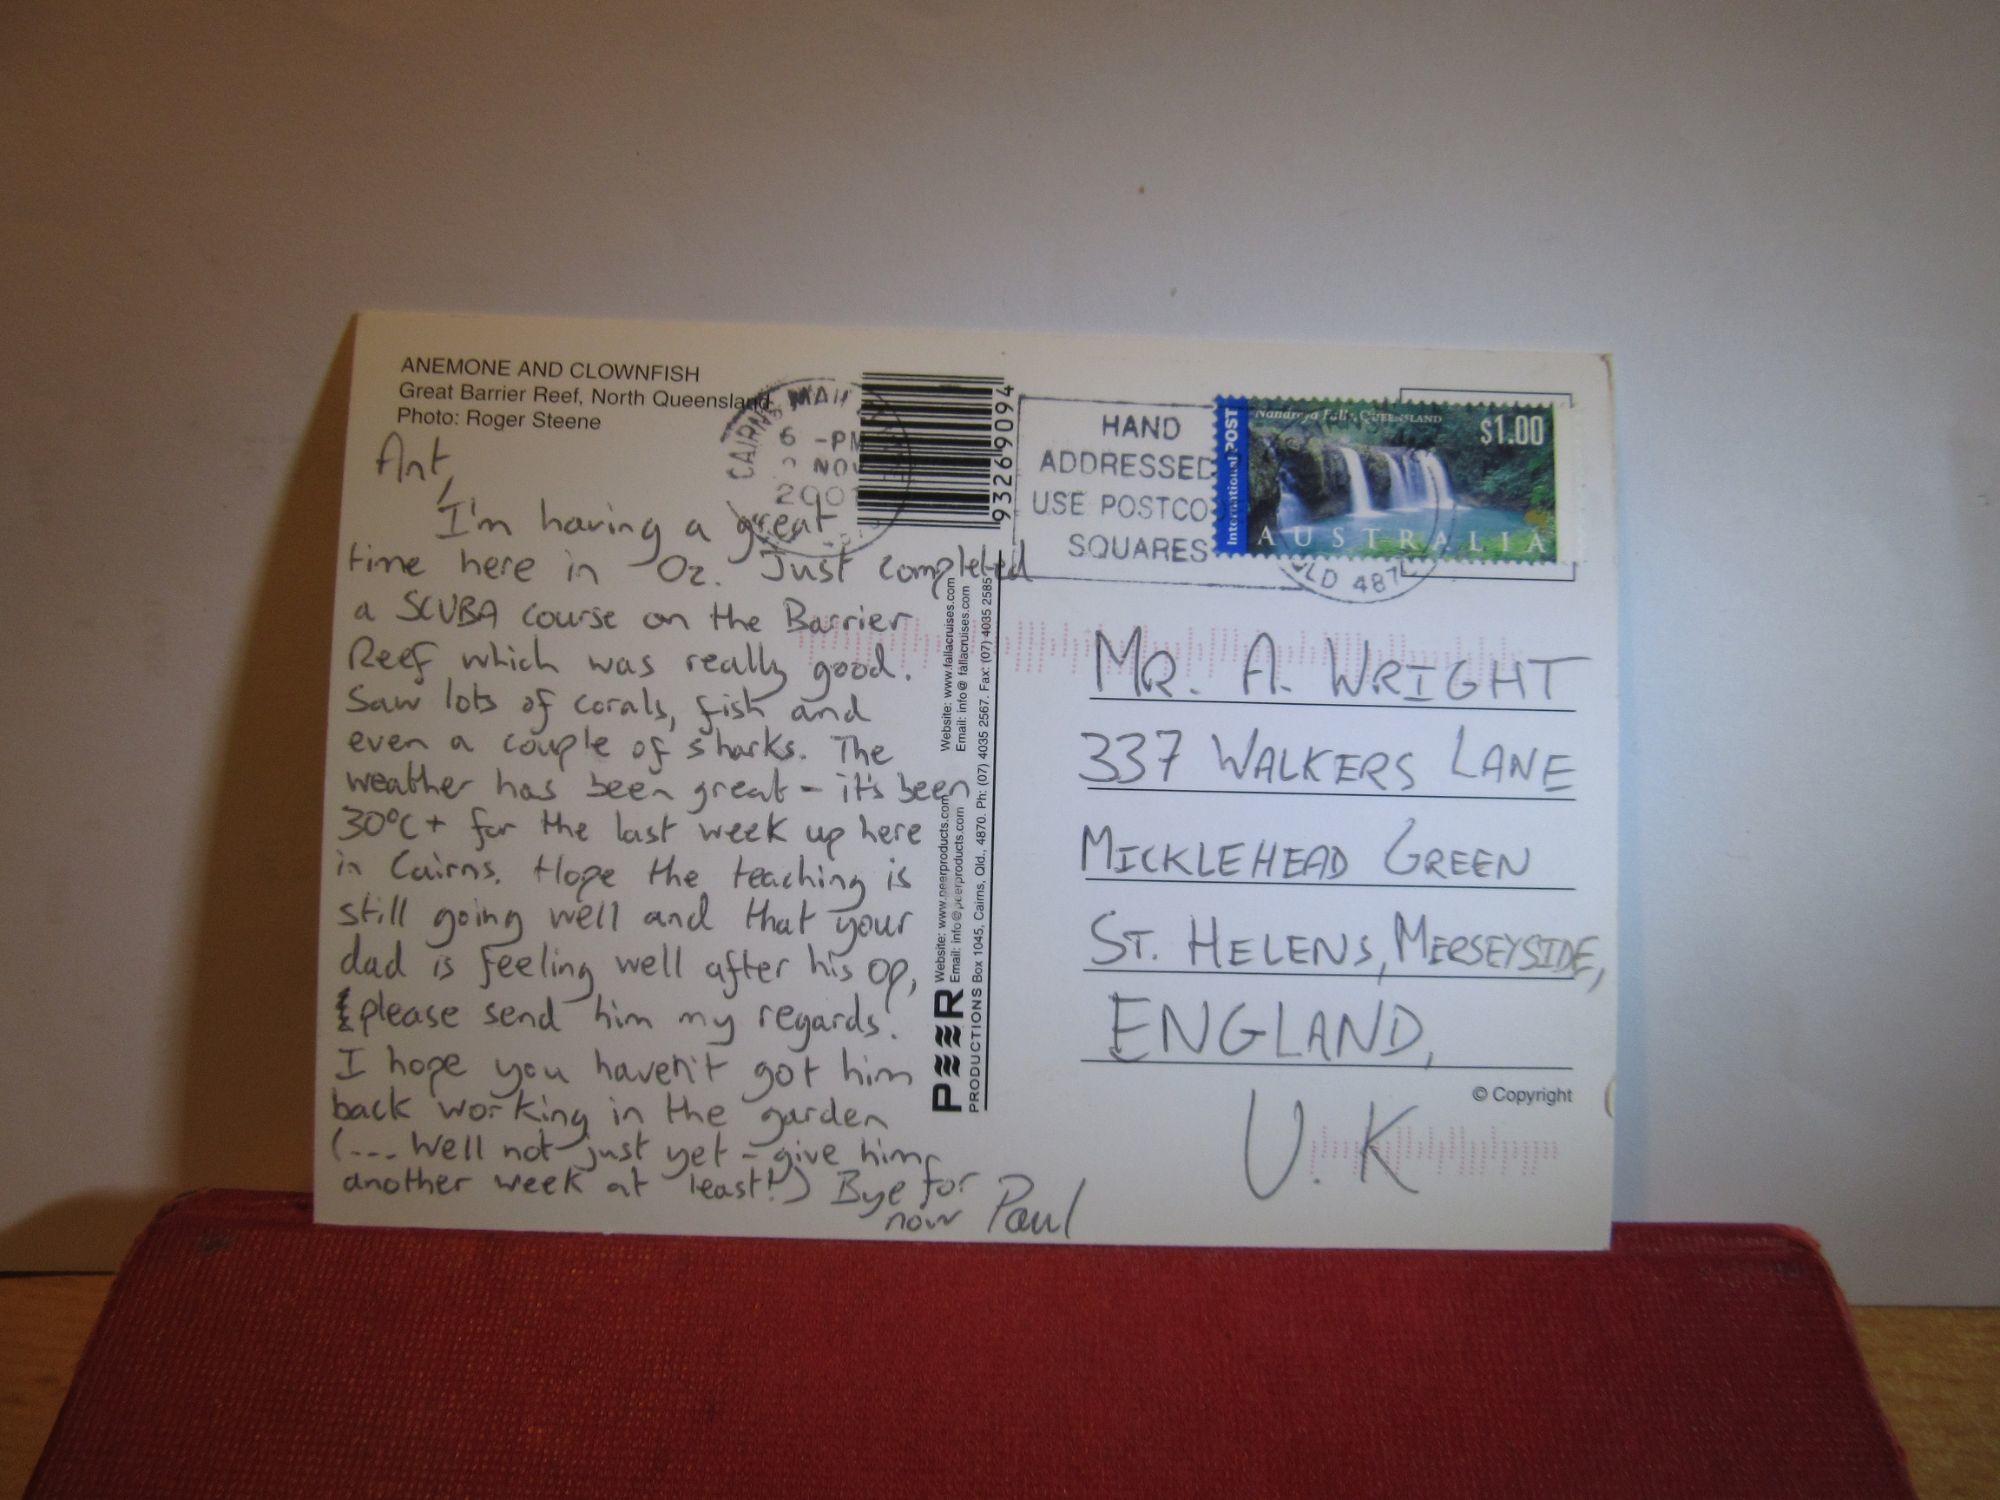 ANEMONE AND CLOWNFISH
Great Barrier Reef, North Queensland
Photo: Roger Steene
Ant,
I'm having a great
time here in Oz. Just completed
a SCUBA course on the Barrier
Reef which was really good.
Saw lots of corals, fish and
even a couple of sharks. The
weather has been great - it's been
30°C+ for the last week up here
in Cairns. Hope the teaching is
still going well and that your
dad is feeling well after his op,
please send him my regards.
I hope you haven't got him
back working in the garden
(... Well not just yet - give him
another week at least!) Bye for
now Paul
CAIRNS MAIL
6 -PM
NOV
200
9326 9094
Website: www.fallacruises.com
Email: info@fallacruises.com
Website: www.peerproducts.com
Email: info@peerproducts.com
PEER
PRODUCTIONS Box 1045, Cairns, Qld., 4870. Ph: (07) 4035 2567. Fax: (07) 4035 2585
HAND
ADDRESSED
USE POSTCO
SQUARES
International POST
Nandroya Falls, QUEENSLAND
$1.00
AUSTRALIA
QLD 487
MR. A. WRIGHT
337 WALKERS LANE
MICKLEHEAD GREEN
ST. HELENS, MERSEYSIDE,
ENGLAND,
© Copyright
U.K